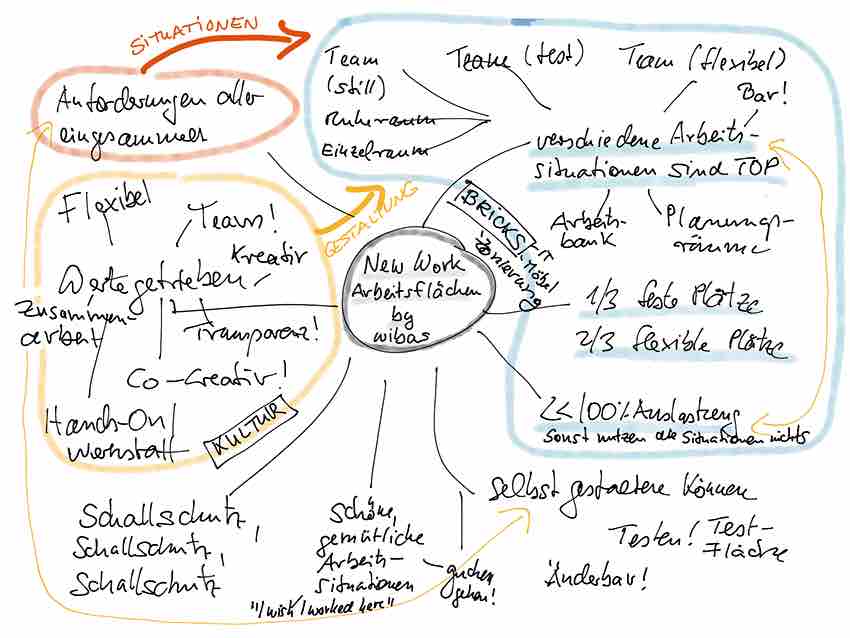 SITUATIONEN
Anforderungen aller
eingesammelt
Team
(still)
Ruheraum
Einzelraum
Team (fest)
Team (flexibel)
Bar!
verschiedene Arbeits-
situationen sind TOP
Arbeits-
bank
Planungs-
räume
BRICKS
Zonierung
Möbel
GESTALTUNG
Flexibel
Team!
Kreativ
Wertegetrieben
Zusammen-
arbeit
Transparenz!
Co-Creativ!
Hands-On/
Werkstatt
KULTUR
New Work
Arbeitsflächen
by
wibas
1/3 feste Plätze
2/3 flexible Plätze
<< 100% Auslastung
sonst nutzen die Situationen nichts
Selbst gestalten können
Testen! Test-
Fläche
Änderbar!
Schallschutz,
Schallschutz,
Schallschutz!
Schöne,
gemütliche
Arbeits-
situationen
"I wish I worked here"
gucken
gehen!